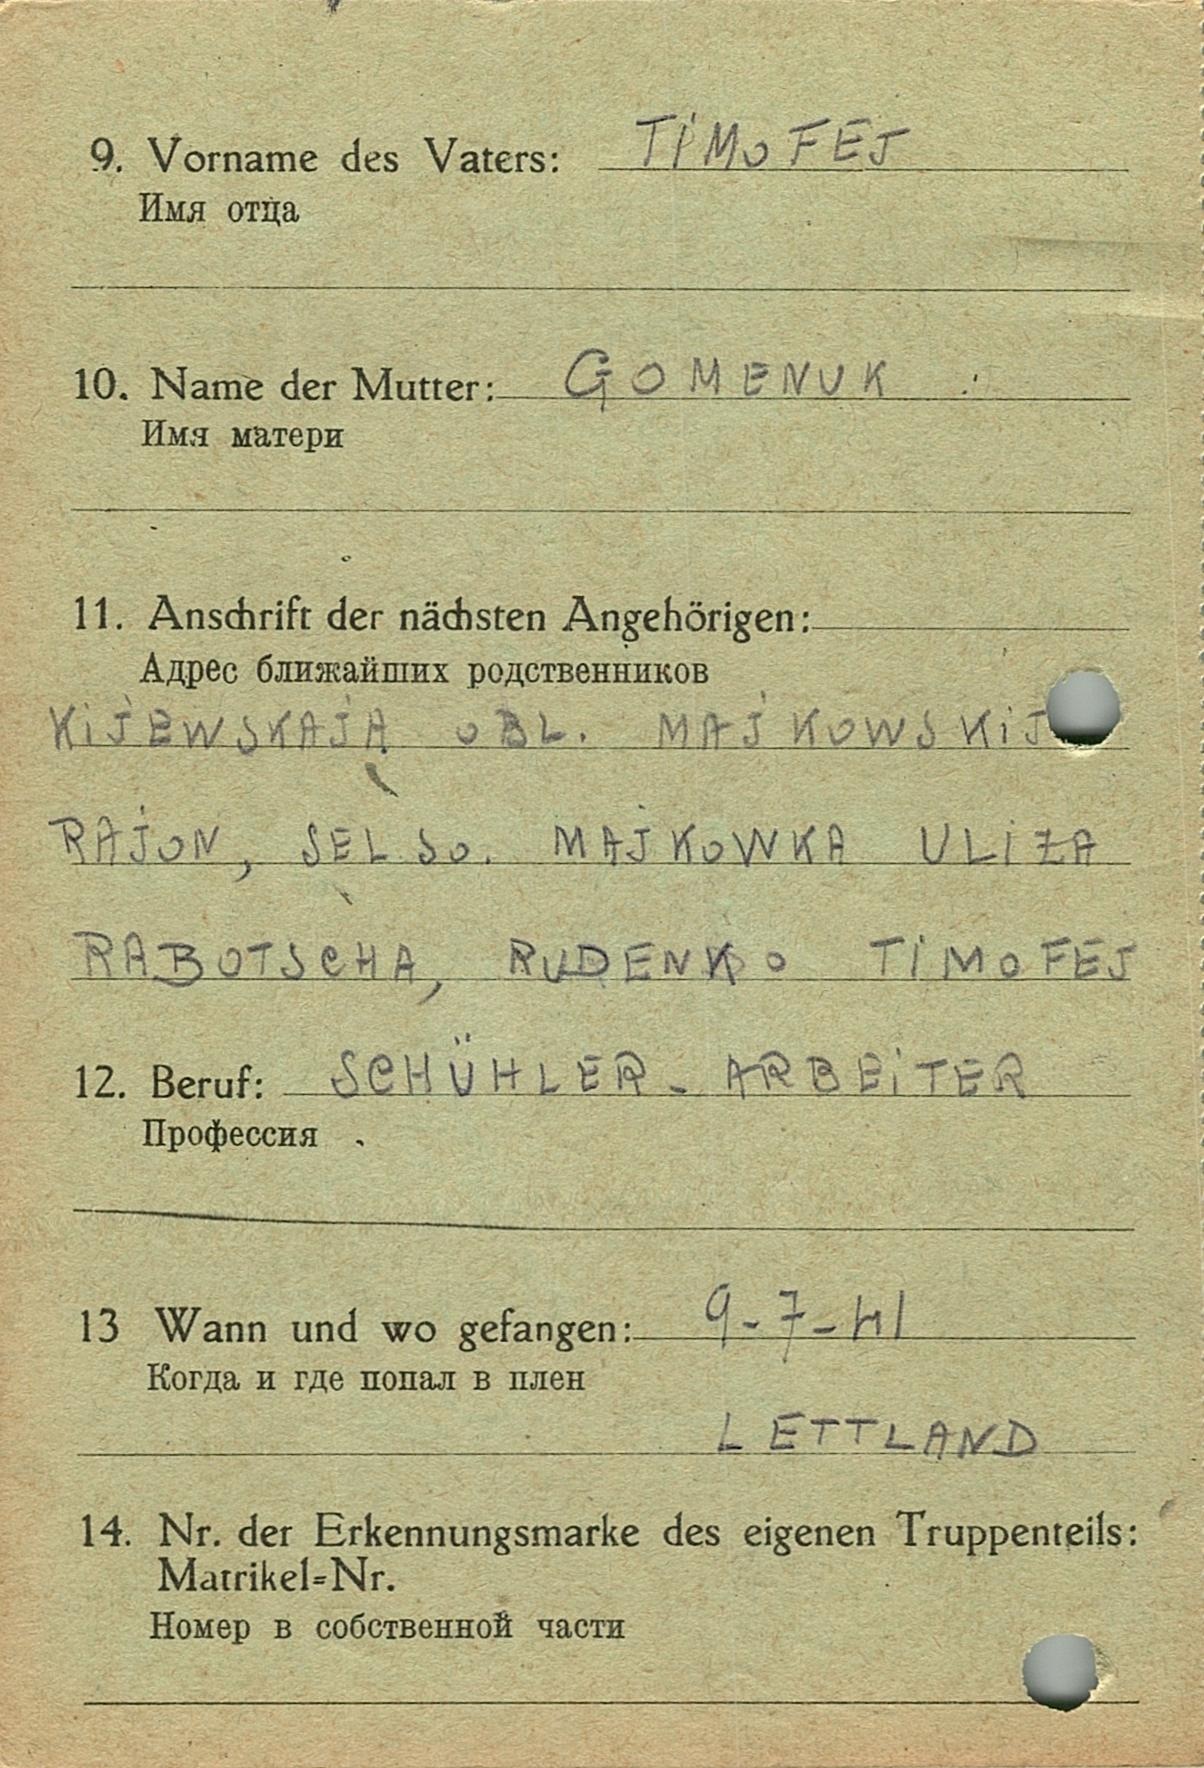 9. Vorname des Vaters: TIMOFEJ
Имя отца
10. Name der Mutter: GOMENUK
Имя матери
11. Anschrift der nächsten Angehörigen:
Адрес ближайших родственников
KIJEWSKAJA OBL. MAJKOWSKIJ
RAJON, SELSO. MAJKOWKA ULIZA
RABOTSCHA, RUDENKO TIMOFEJ
12. Beruf: SCHÜHLER - ARBEITER
Профессия
13 Wann und wo gefangen: 9-7-41
Когда и где попал в плен
LETTLAND
14. Nr. der Erkennungsmarke des eigenen Truppenteils:
Matrikel=Nr.
Номер в собственной части